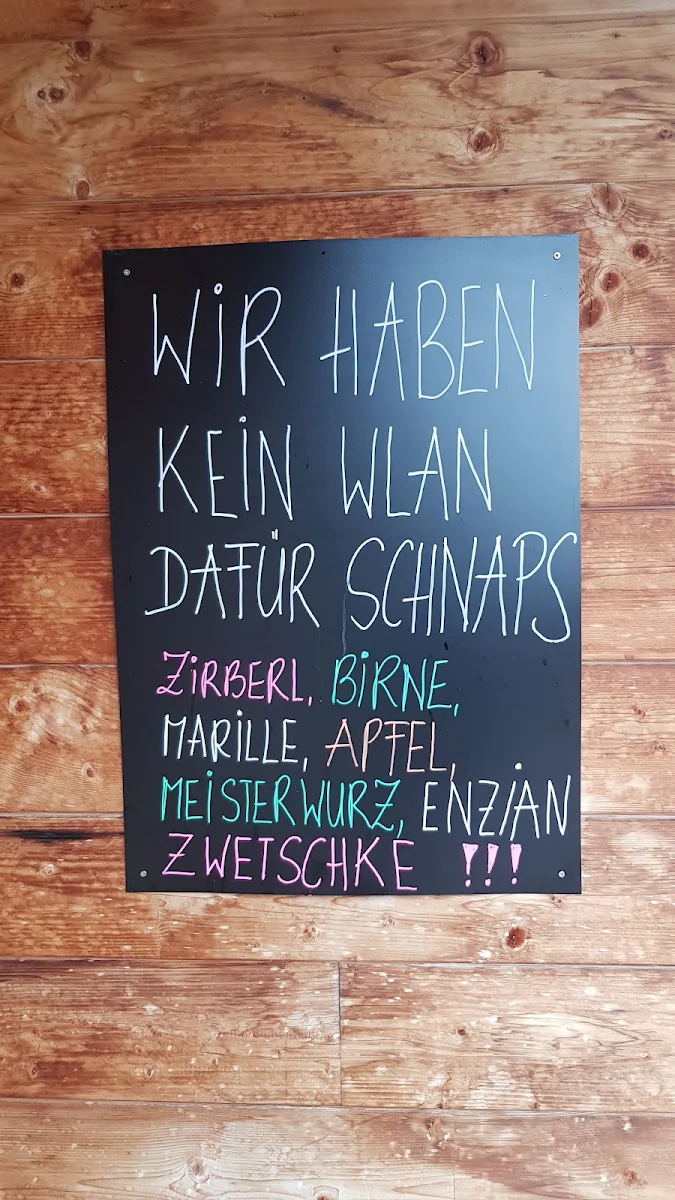 WIR HABEN
KEIN WLAN
DAFÜR SCHNAPS
ZIRBERL, BIRNE,
MARILLE, APFEL,
MEISTERWURZ, ENZIAN
ZWETSCHKE !!!